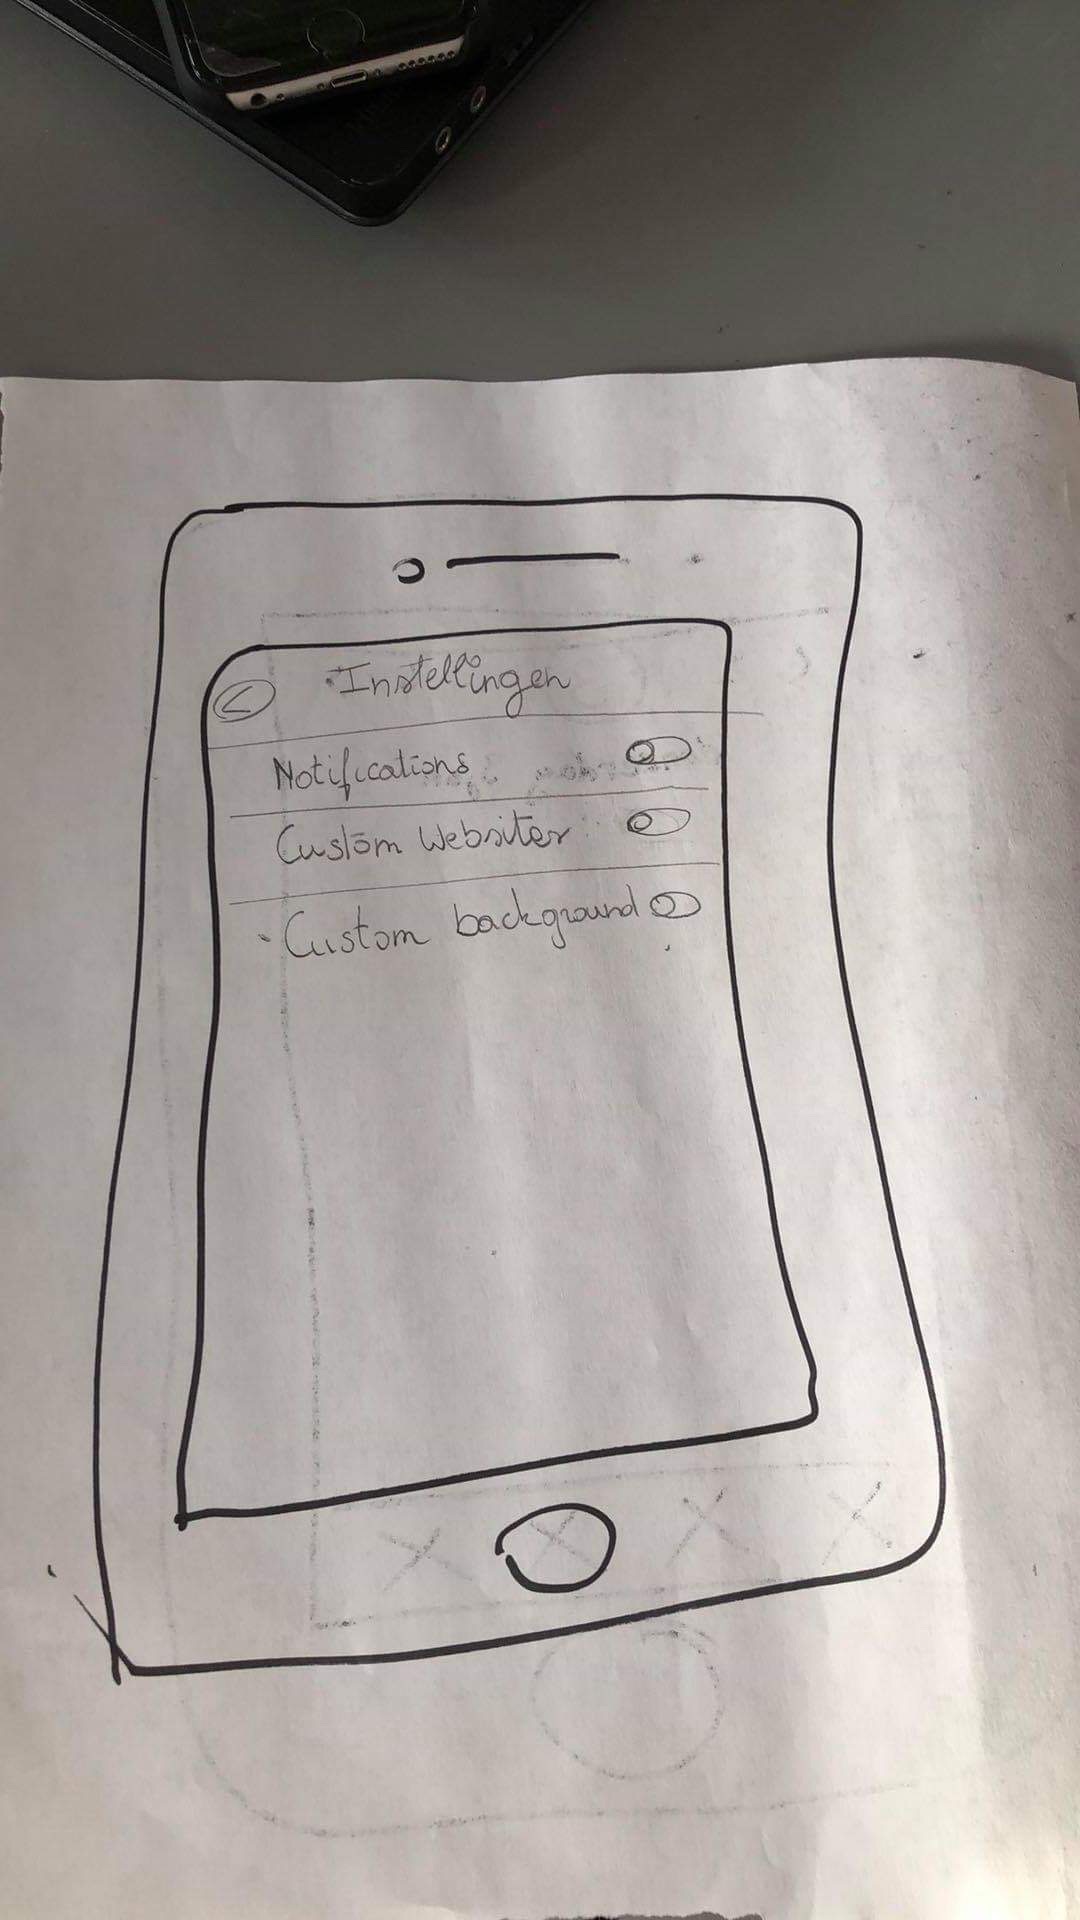 Instellingen
Notifications
Custom Websites
Custom background